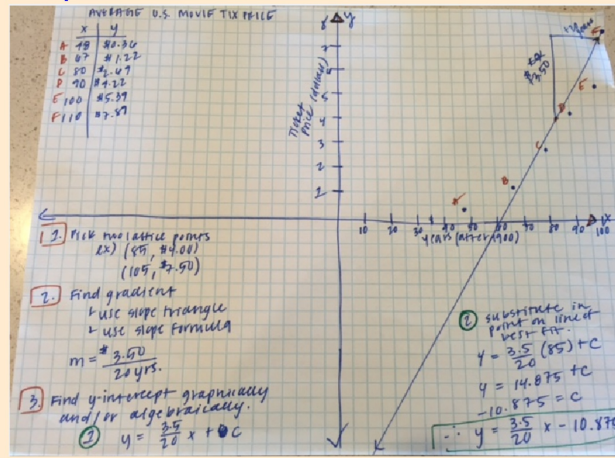 AVERAGE U.S. MOVIE TIX PRICE
x y
A 48 $0.36
B 67 $1.22
C 80 $2.69
D 90 $4.22
E 100 $5.39
F 110 $7.89
y
Ticket Price (dollars)
$3.50
F
E
D
C
B
A
7
5
4
3
2
1
10 20 30 40 50 60 70 80 90 100
x
years (after 1900)
1. Pick two lattice points
ex) (85, $4.00)
(105, $7.50)
2. Find gradient
use slope triangle
use slope formula
m = $3.50
20 yrs.
3. Find y-intercept graphically
and/or algebraically.
① y = 3.5/20 x + c
② substitute in
point on line of
best fit.
y = 3.5/20 (85) + c
y = 14.875 + c
-10.875 = c
∴ y = 3.5/20 x - 10.875